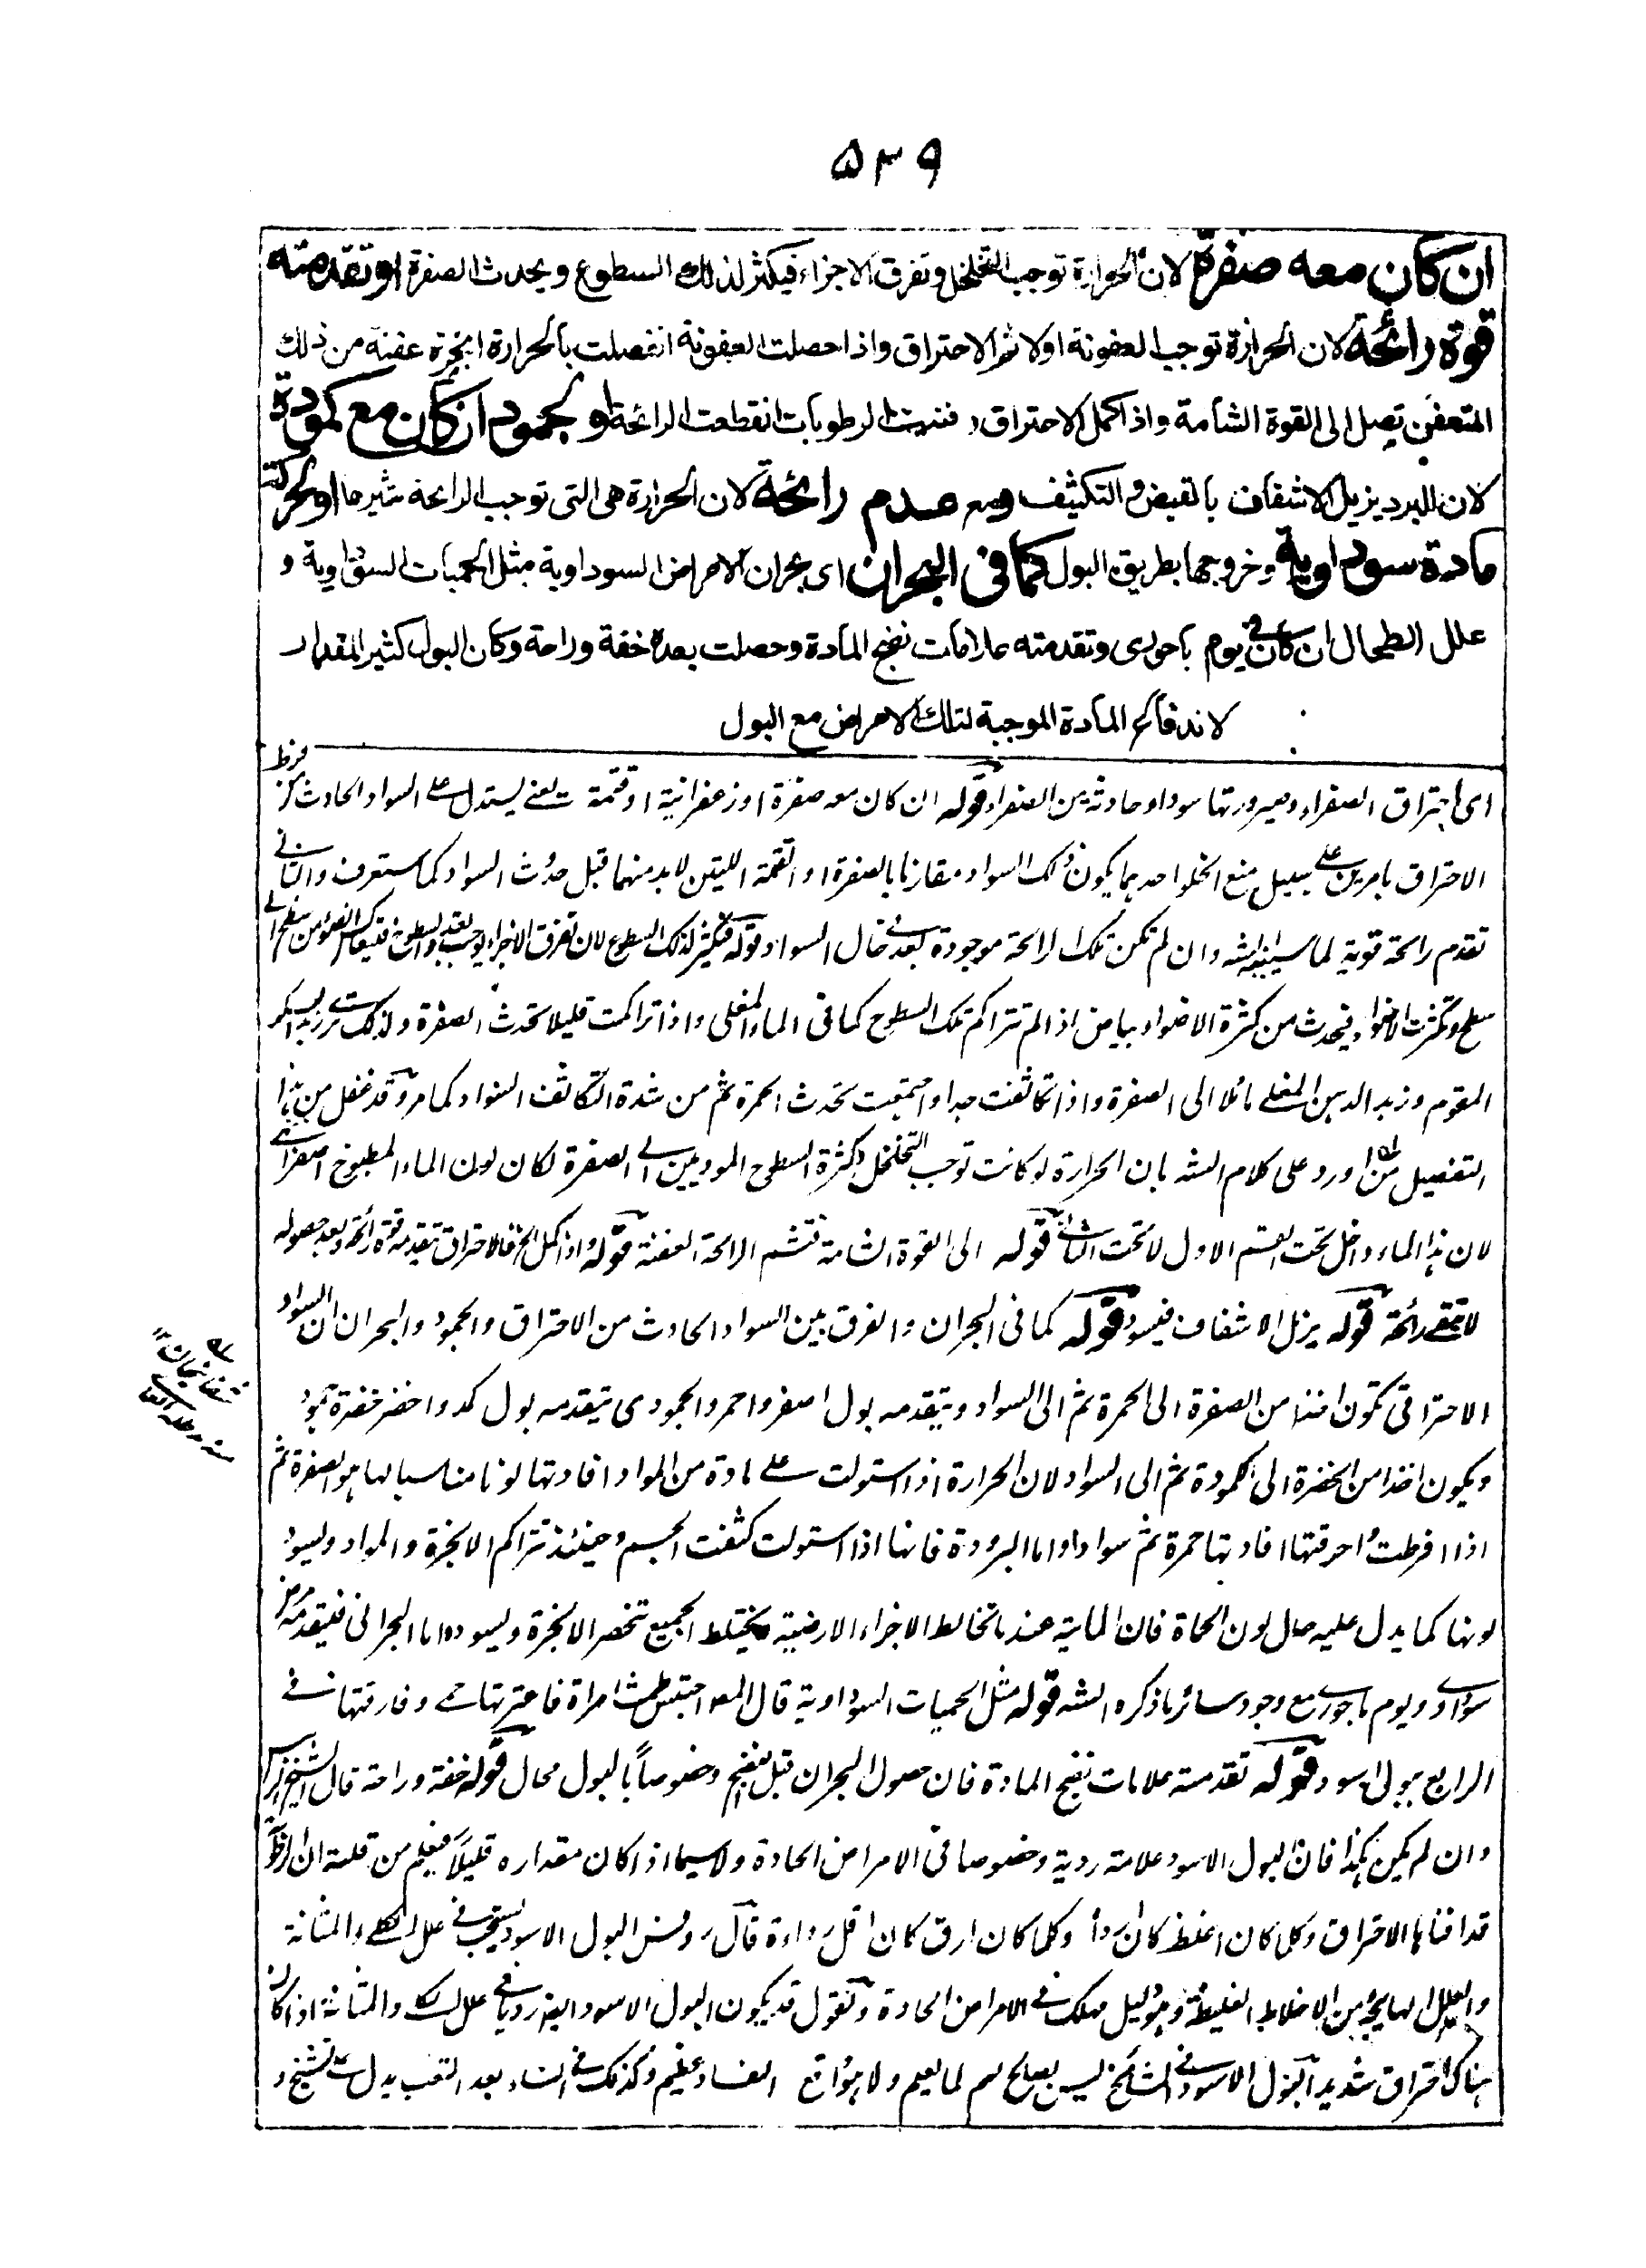 ۵۳۹
ان كان معه صفرة لان الحرارة توجب التخلخل وتفرق الاجزاء فيكثر لذلك السطوع ويحدث الصفرة او تقدمته
قوة رائحة لان الحرارة توجب العفونة اولا ثم الاحتراق واذا حصلت العفونة انفصلت بالحرارة ابخرة عفنة من ذلك
المتعفن تصل الى القوة الشامة واذا كمل الاحتراق وفنيت الرطوبات انقطعت الرائحة او لجمود ان كان مع كمودة
لان البرد يزيل الاشفاف بالقبض والتكثيف ومع عدم رائحة لان الحرارة هى التى توجب الرائحة بتثيرها او لحركة
مادة سوداوية وخروجها بطريق البول كما فى البحران اى بحران الامراض السوداوية مثل الحميات السوداوية و
علل الطحال ان كان فى يوم باحورى وتقدمته علامات نضج المادة وحصلت بعده خفة وراحة وكان البول كثير المقدار
لاندفاع المادة الموجبة لتلك الامراض مع البول
اى احتراق الصفراء وصيرورتها سوداء حادثة من الصفراء قوله ان كان معه صفرة او زعفرانية او قتمة يعنى يستدل على السواد الحادث من فرط
الاحتراق بامرين على سبيل منع الخلو احدهما يكون ذلك السواد مقارنا بالصفرة او القتمة اللتين لابد منهما قبل حدوث السواد كما ستعرف والثانى
تقدم رائحة قوية لما سيبينه الشه وان لم تكن تلك الرائحة موجودة بعد فى حال السواد قوله فيكثر لذلك السطوع لان تفرق الاجزاء يوجب تعدد السطوح فينعكس الضوء من سطح الى
سطح وتكثرت الاضواء فيحدث من كثرة الاضواء بياض اذا لم تتراكم تلك السطوح كما فى الماء المغلى واذا تراكمت قليلا تحدث الصفرة ولذلك ترى زبد السكر
المقوم وزبد الدبس المغلى مائلا الى الصفرة واذا تكاثفت جدا واجتمعت تحدث الحمرة ثم من شدة التكاثف السواد كما مر وقد غفل من هذا
التفصيل من اورد على كلام الشه بان الحرارة لو كانت توجب التخلخل وكثرة السطوح الموديين الى الصفرة لكان لون الماء المطبوخ اصفر
لان هذا الماء داخل تحت القسم الاول لا تحت الثانى قوله الى القوة الشامة فتشم الرائحة العفنة قوله واذا كمل الخ فالاحتراق تتقدمه قوة رائحة وبعد حصوله
لا تبقى رائحة قوله يزيل الاشفاف فيسود قوله كما فى البحران والفرق بين السواد الحادث من الاحتراق والجمود والبحران ان السواد
الاحتراقى تكون اخذا من الصفرة الى الحمرة ثم الى السواد ويتقدمه بول اصفر واحمر والجمودى يتقدمه بول كمد واخضر خضرة جمود
ويكون اخذا من الخضرة الى الكمودة ثم الى السواد لان الحرارة اذا استولت على مادة من المواد افادتها لونا مناسبا لها هو الصفرة ثم
اذا افرطت واحرقتها افادتها حمرة ثم سوادا واما البرودة فانها اذا استولت كثفت الجسم وحينئذ تتراكم الابخرة والمواد ويسود
لونها كما يدل عليه حال لون الحماة فان المائية عندما تخالط الاجزاء الارضية ويختلط الجميع تنحصر الابخرة ويسود واما البحرانى فيتقدمه مرض
سوداوى ويوم باحورى مع وجود سائر ما ذكره الشه قوله مثل الحميات السوداوية قال المص احتبس طمث امراة فاعترتها حمى وفارقتها فى
الرابع ببول اسود قوله تقدمته علامات نضج المادة فان حصول البحران قبل النضج وخصوصاً بالبول محال قوله خفة وراحة قال الشيخ الرئيس
وان لم يكن هكذا فان البول الاسود علامة ردية وخصوصا فى الامراض الحادة ولاسيما اذا كان مقداره قليلاً فيعلم من قلته ان الرطوبة
قد افناها الاحتراق وكل كان اغلظ كان اردأ وكلما كان ارق كان اقل رداءة قال روفس البول الاسود يستحب فى علل الكلى والمثانة
والعلل الهائجة من الاخلاط الغليظة وهو دليل مهلك فى الامراض الحادة ونقول قد يكون البول الاسود ايضا رديا فى علل الكلى والمثانة اذا كان
هناك احتراق شديد البول الاسود فى المشائخ ليس بصالح لهم لما يعلم ولا هو واقع الفساد عظيم وكذلك فى النساء بعد التعب يدل على تشنج و